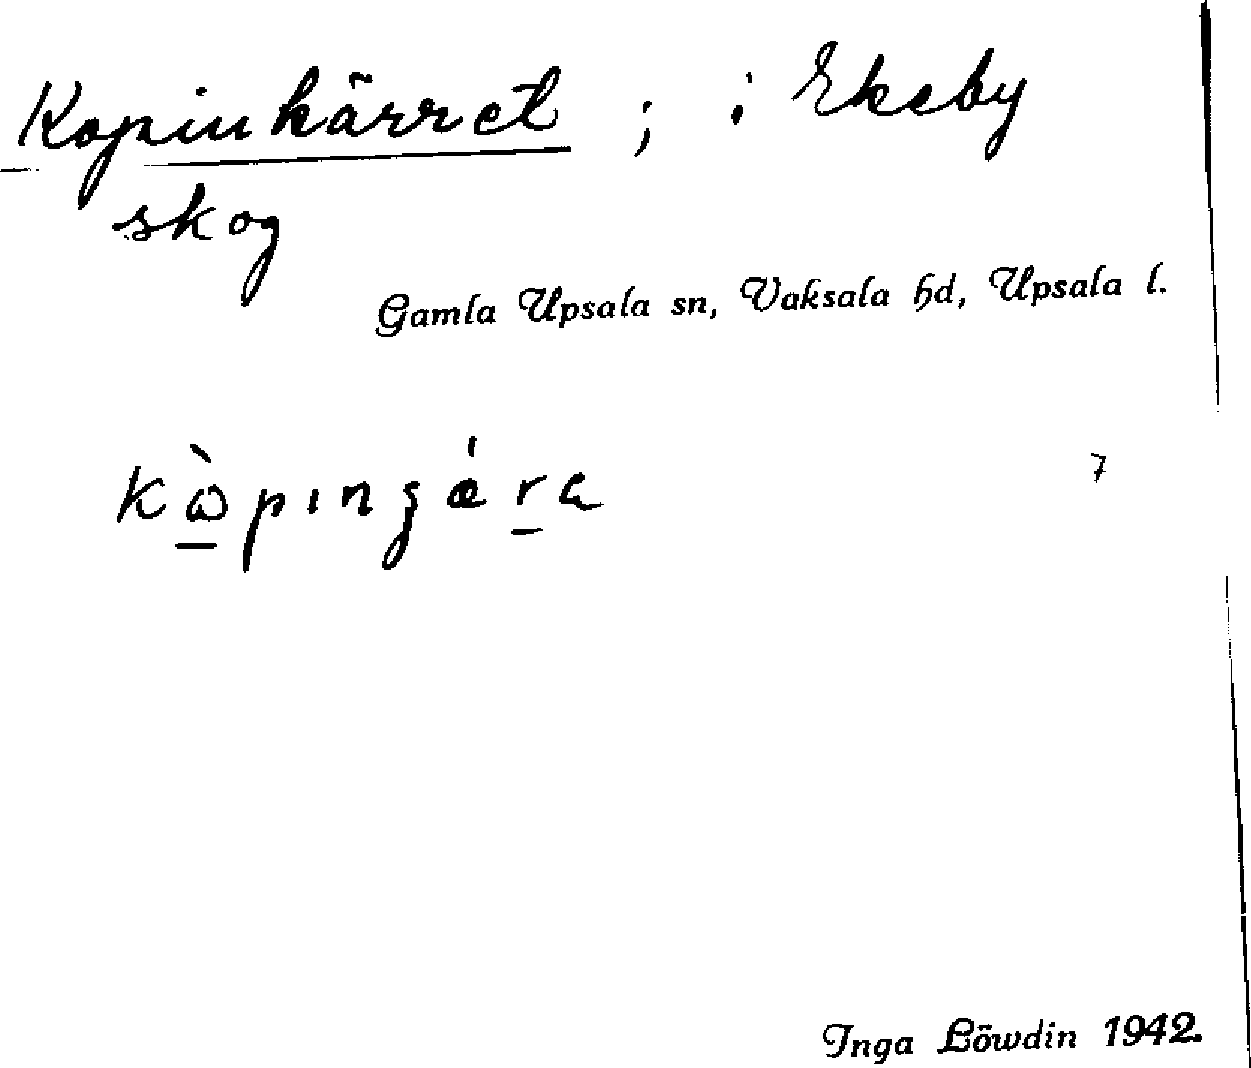 Kopinkärret ; i Ekeby
skog
Gamla Upsala sn, Vaksala hd, Upsala l.
7
Inga Löwdin 1942.